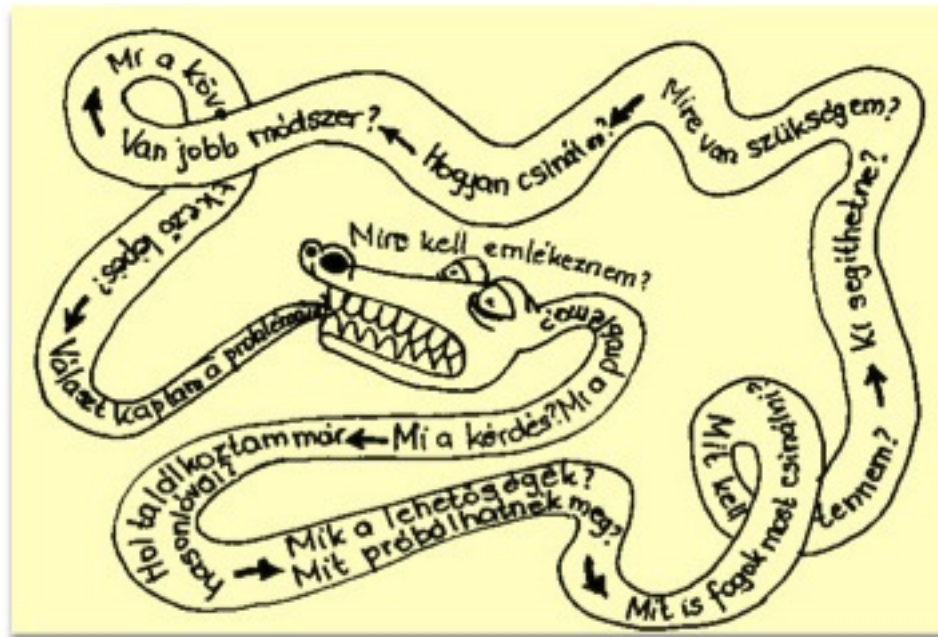 Mire kell emlékeznem?
Mi a probléma?
Mi a kérdés?
Hol találkoztam már
hasonlóval?
Mik a lehetőségék?
Mit próbálhatnék meg?
Mit is fogok most csinálni?
Mit kell tennem?
Ki segíthetne?
Mire van szükségem?
Hogyan csinálom?
Van jobb módszer?
Mi a következő lépés?
Választ kaptam a problémára